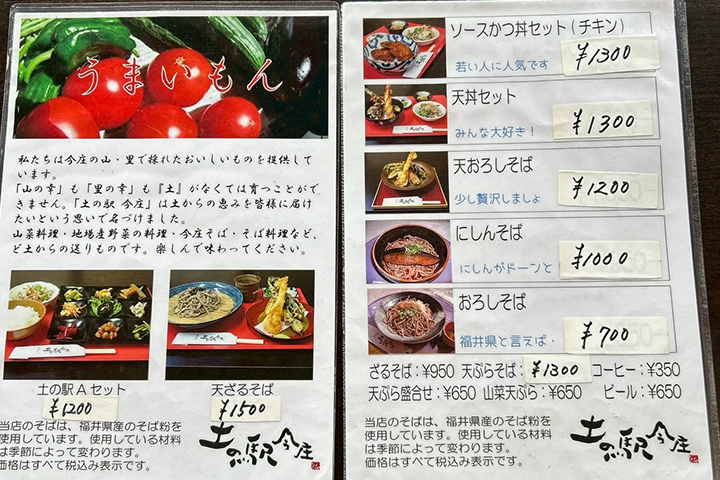 うまいもん
私たちは今庄の山・里で採れたおいしいものを提供して
います。
「山の幸」も「里の幸」も『土』がなくては育つことがで
きません。「土の駅 今庄」は土からの恵みを皆様に届け
たいという思いで名づけました。
山菜料理・地場産野菜の料理・今庄そば・そば料理など、
ど土からの送りものです。楽しんで味わってください。
土の駅Aセット
¥1200
天ざるそば
¥1500
当店のそばは、福井県産のそば粉を
使用しています。使用している材料
は季節によって変わります。
価格はすべて税込み表示です。
土の駅 今庄
ソースかつ丼セット(チキン)
若い人に人気です
¥1300
天丼セット
みんな大好き!
¥1300
天おろしそば
少し贅沢しましょ
¥1200
にしんそば
にしんがドーンと
¥1000
おろしそば
福井県と言えば・
¥700
ざるそば:¥950 天ぷらそば:¥1300 コーヒー:¥350
天ぷら盛合せ:¥650 山菜天ぷら:¥650 ビール:¥650
当店のそばは、福井県産のそば粉を
使用しています。使用している材料
は季節によって変わります。
価格はすべて税込み表示です。
土の駅 今庄